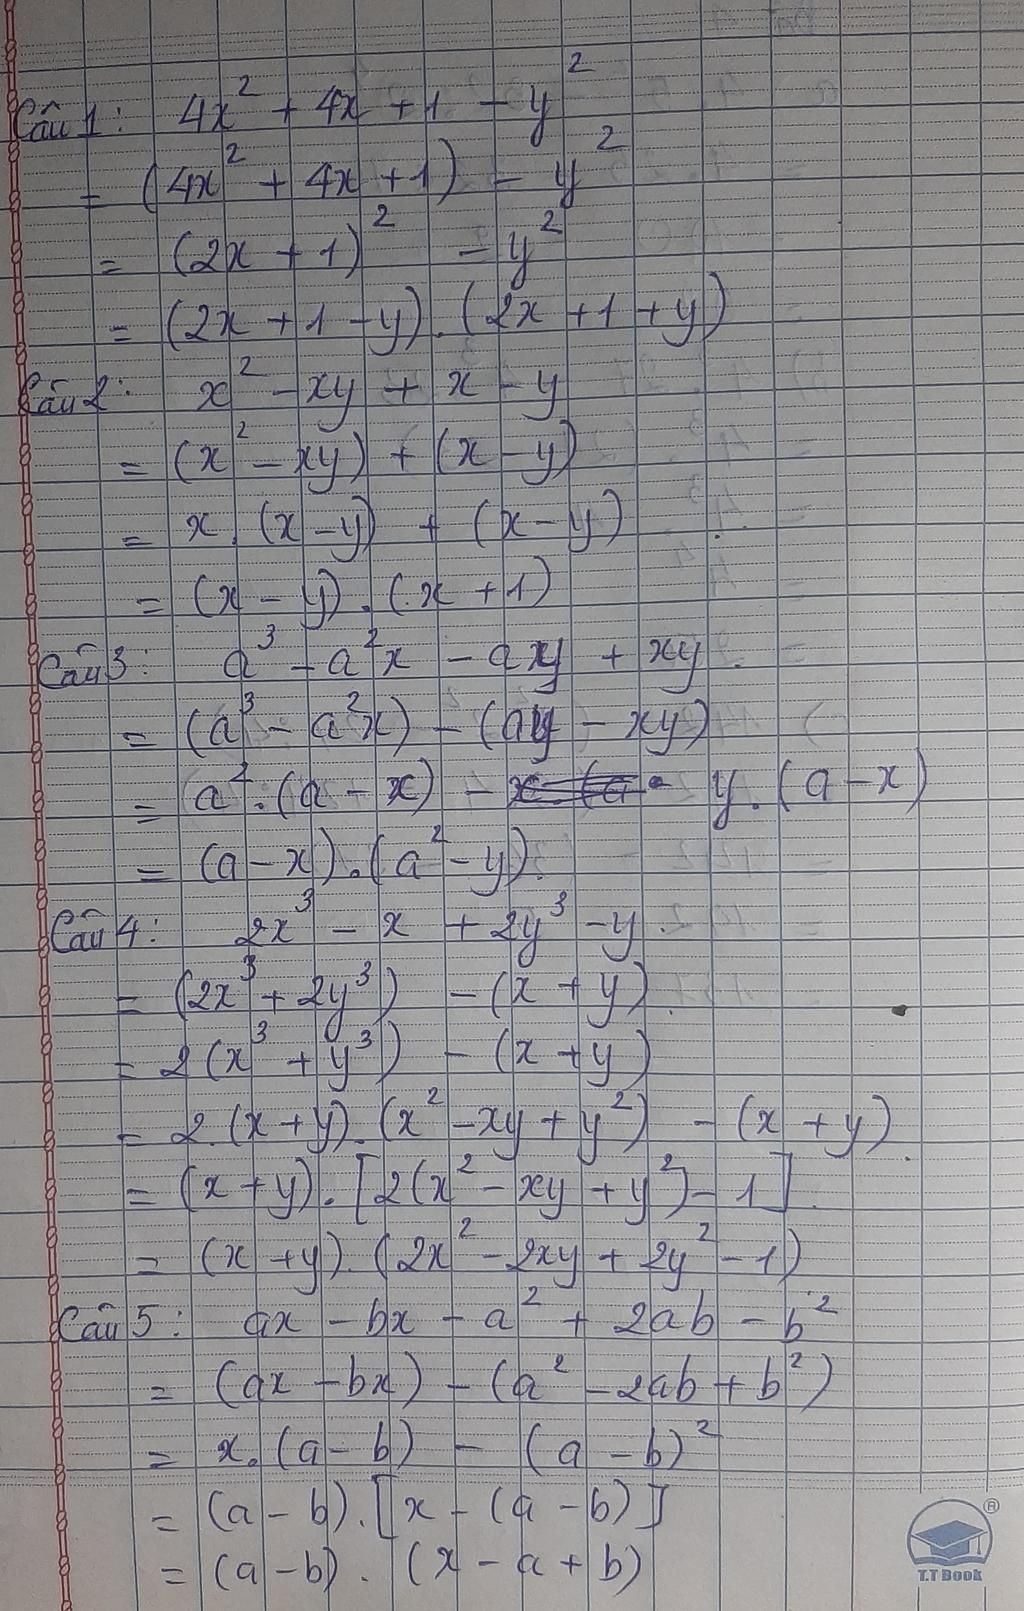 Câu 1: 4x² + 4x + 1 - y²
= (4x² + 4x + 1) - y²
= (2x + 1)² - y²
= (2x + 1 - y).(2x + 1 + y)
Câu 2: x² - xy + x - y
= (x² - xy) + (x - y)
= x.(x - y) + (x - y)
= (x - y).(x + 1)
Câu 3: a³ - a²x - axy + xy
= (a³ - a²x) - (ay - xy)
= a².(a - x) - y.(a - x)
= (a - x).(a² - y).
Câu 4: 2x³ - x + 2y³ - y
= (2x³ + 2y³) - (x + y)
= 2(x³ + y³) - (x + y)
= 2.(x + y).(x² - xy + y²) - (x + y)
= (x + y).[2(x² - xy + y²) - 1]
= (x + y).(2x² - 2xy + 2y² - 1)
Câu 5: ax - bx - a² + 2ab - b²
= (ax - bx) - (a² - 2ab + b²)
= x.(a - b) - (a - b)²
= (a - b).[x - (a - b)]
= (a - b).(x - a + b)
®
T.T Book